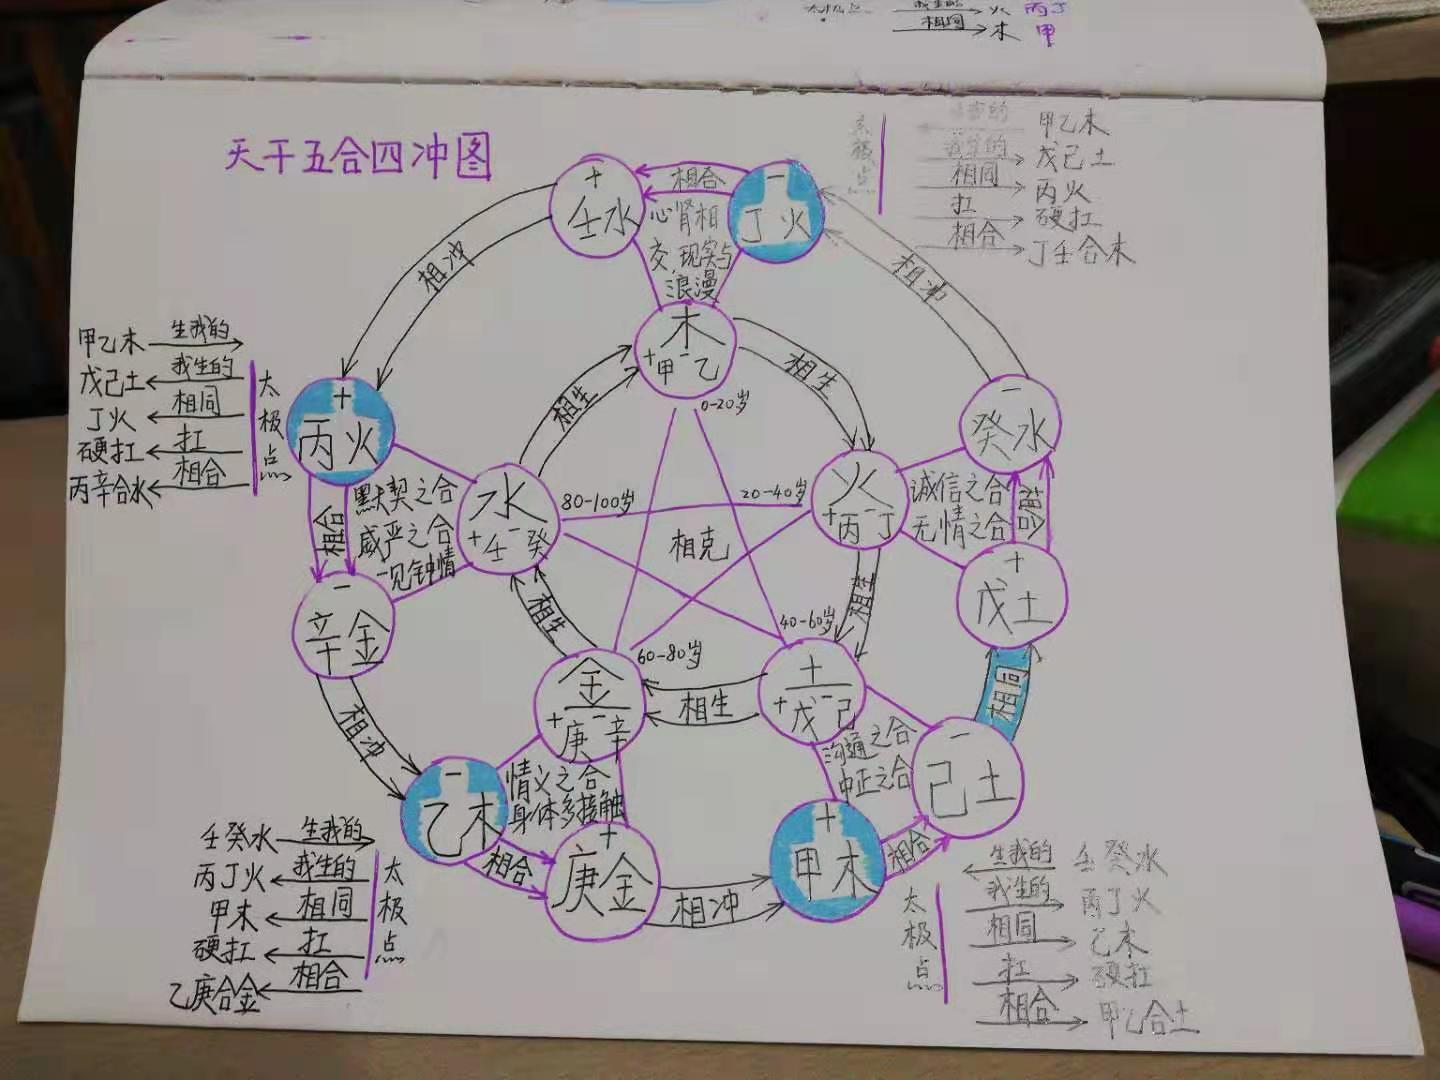 我生的 火 丙丁
相同 木 甲
天干五合四冲图
+
壬水
相合
心肾相
交,现实与
浪漫
-
丁火
太极点
甲乙木
我生的 戊己土
相同 丙火
扛 硬扛
相合 丁壬合木
相冲
相冲
甲乙木 生我的
戊己土 我生的
丁火 相同
硬扛 扛
丙辛合水 相合
太极点
+
丙火
木
+甲 -乙
0-20岁
相生
相生
-
癸水
默契之合
威严之合
一见钟情
相合
水
+壬 -癸
80-100岁
20-40岁
火
+丙 -丁
诚信之合
无情之合
相合
相克
-
辛金
+
戊土
相生
相生
40-60岁
60-80岁
金
+庚 -辛
相生
土
+戊 -己
相同
相冲
沟通之合
中正之合
-
己土
-
乙木
情义之合
身体多接触
相合
+
庚金
相冲
+
甲木
相合
壬癸水 生我的
丙丁火 我生的
甲木 相同
硬扛 扛
乙庚合金 相合
太极点
太极点
生我的 壬癸水
我生的 丙丁火
相同 乙木
扛 硬扛
相合 甲己合土